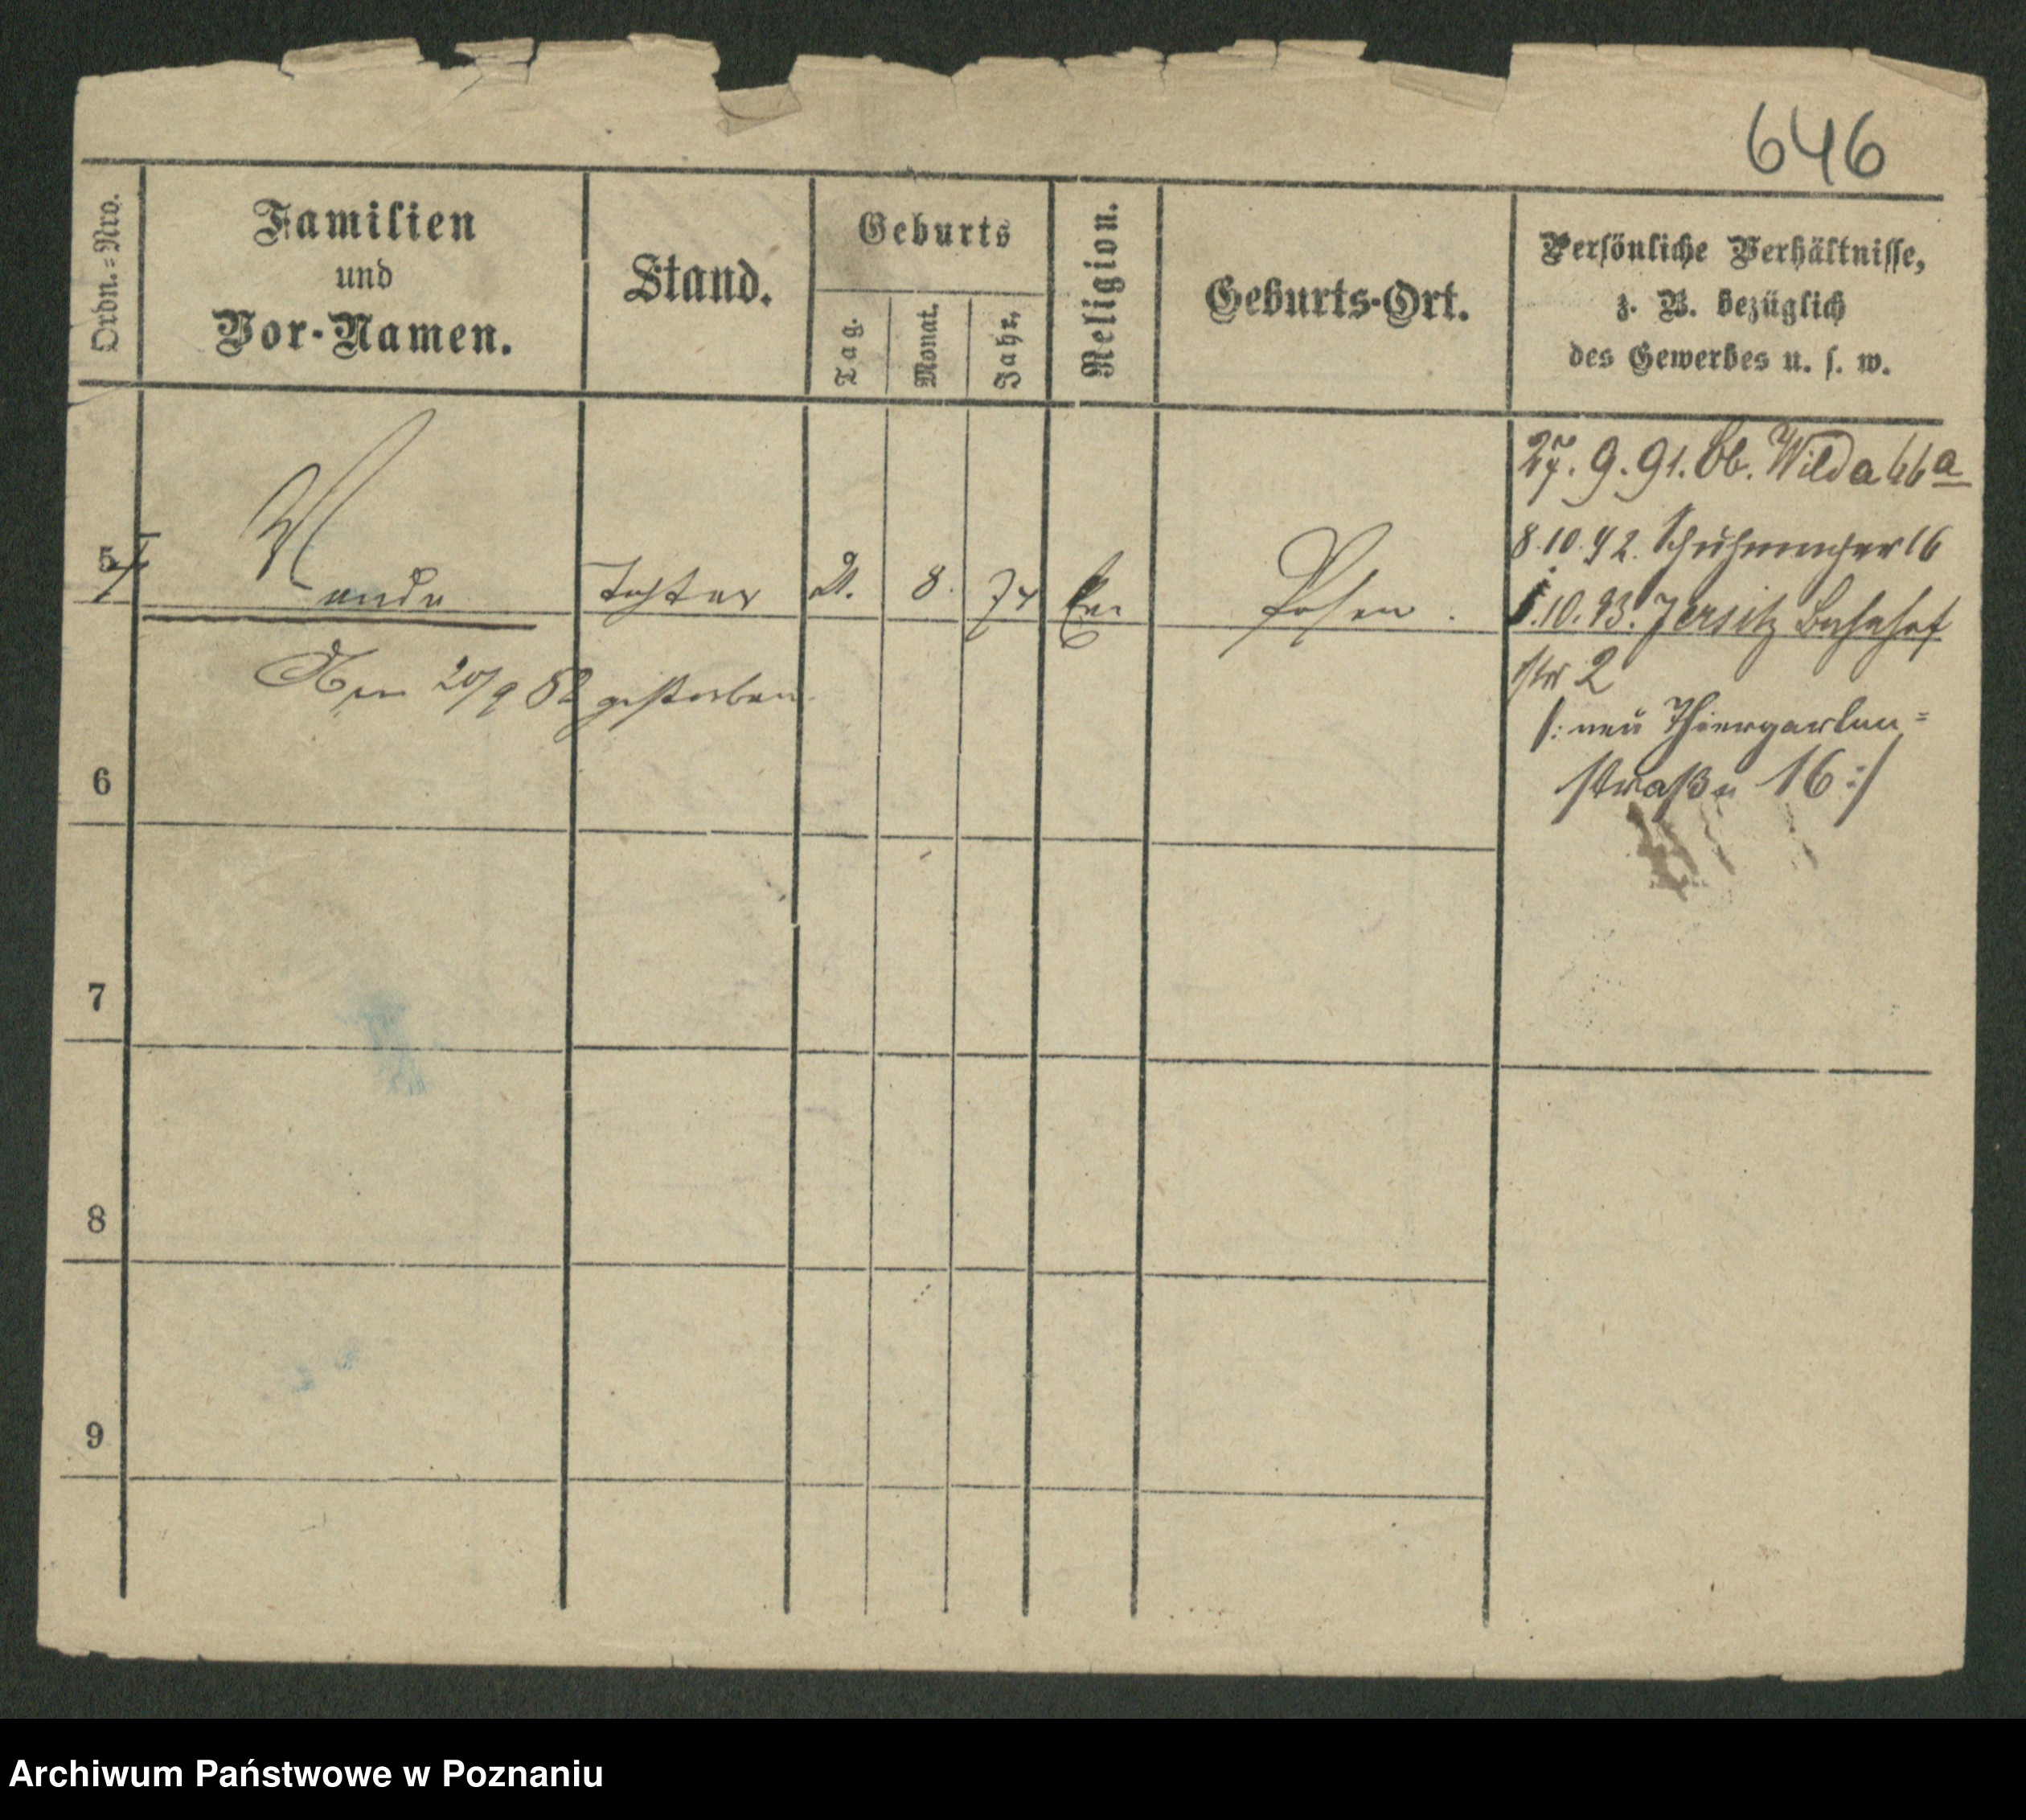 646
Ordn.=Nro.
Familien
und
Vor-Namen.
Stand.
Geburts
Tag.
Monat.
Jahr.
Religion.
Geburts-Ort.
Persönliche Verhältnisse,
z. B. bezüglich
des Gewerbes u. s. w.
5
Wanda
Tochter
21.
8.
74
Posen.
Am 20/9 82 gestorben.
27. 9. 91. Ob. Wilda 66a
8.10.92. Schuhmacher 16
.10.93. Jersitz Bahnhof
str 2
/: neu Thiergarten=
straße 16 :/
6
7
8
9
Archiwum Państwowe w Poznaniu